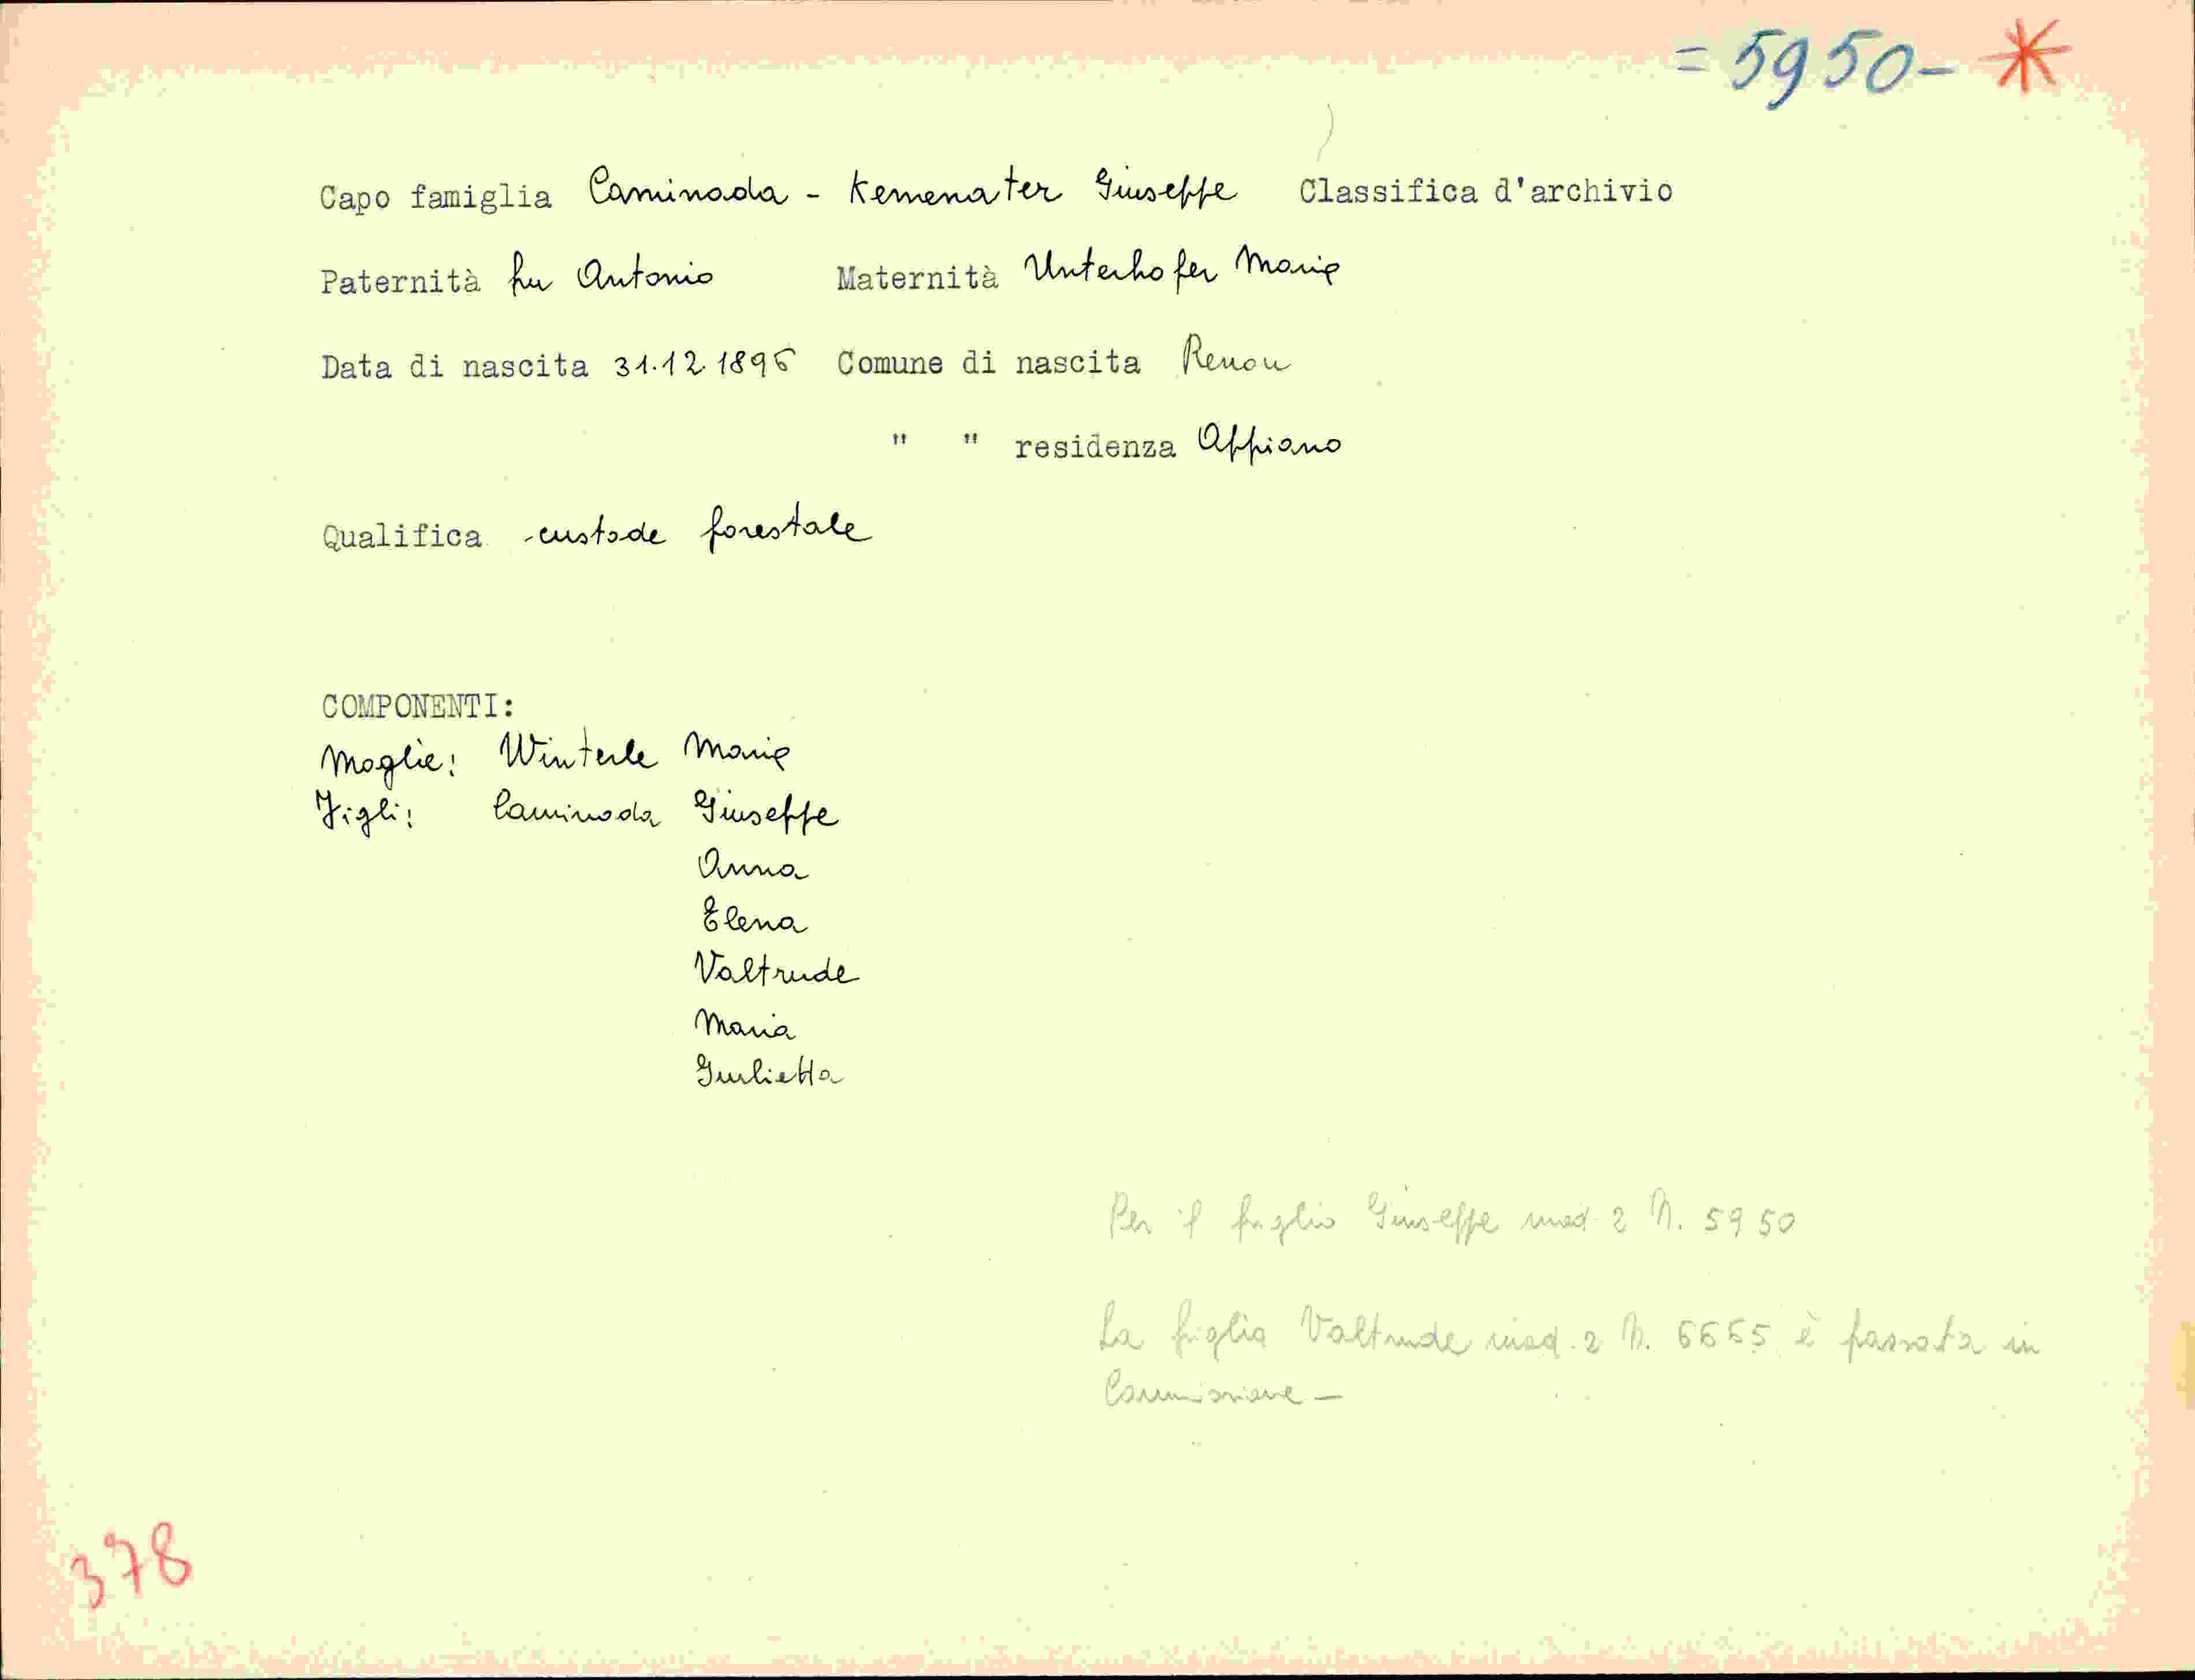 = 5950 - *
Capo famiglia Caminada - Kemenater Giuseppe Classifica d'archivio
Paternità fu Antonio Maternità Unterhofer Maria
Data di nascita 31.12.1896 Comune di nascita Renon
" " residenza Appiano
Qualifica custode forestale
COMPONENTI:
Moglie: Winterle Maria
Figli: Caminada Giuseppe
Anna
Elena
Valtrude
Maria
Giulietta
Per il figlio Giuseppe mod 2 N. 5950
La figlia Valtrude mod. 2 N. 6665 è passata in
Commissione -
378